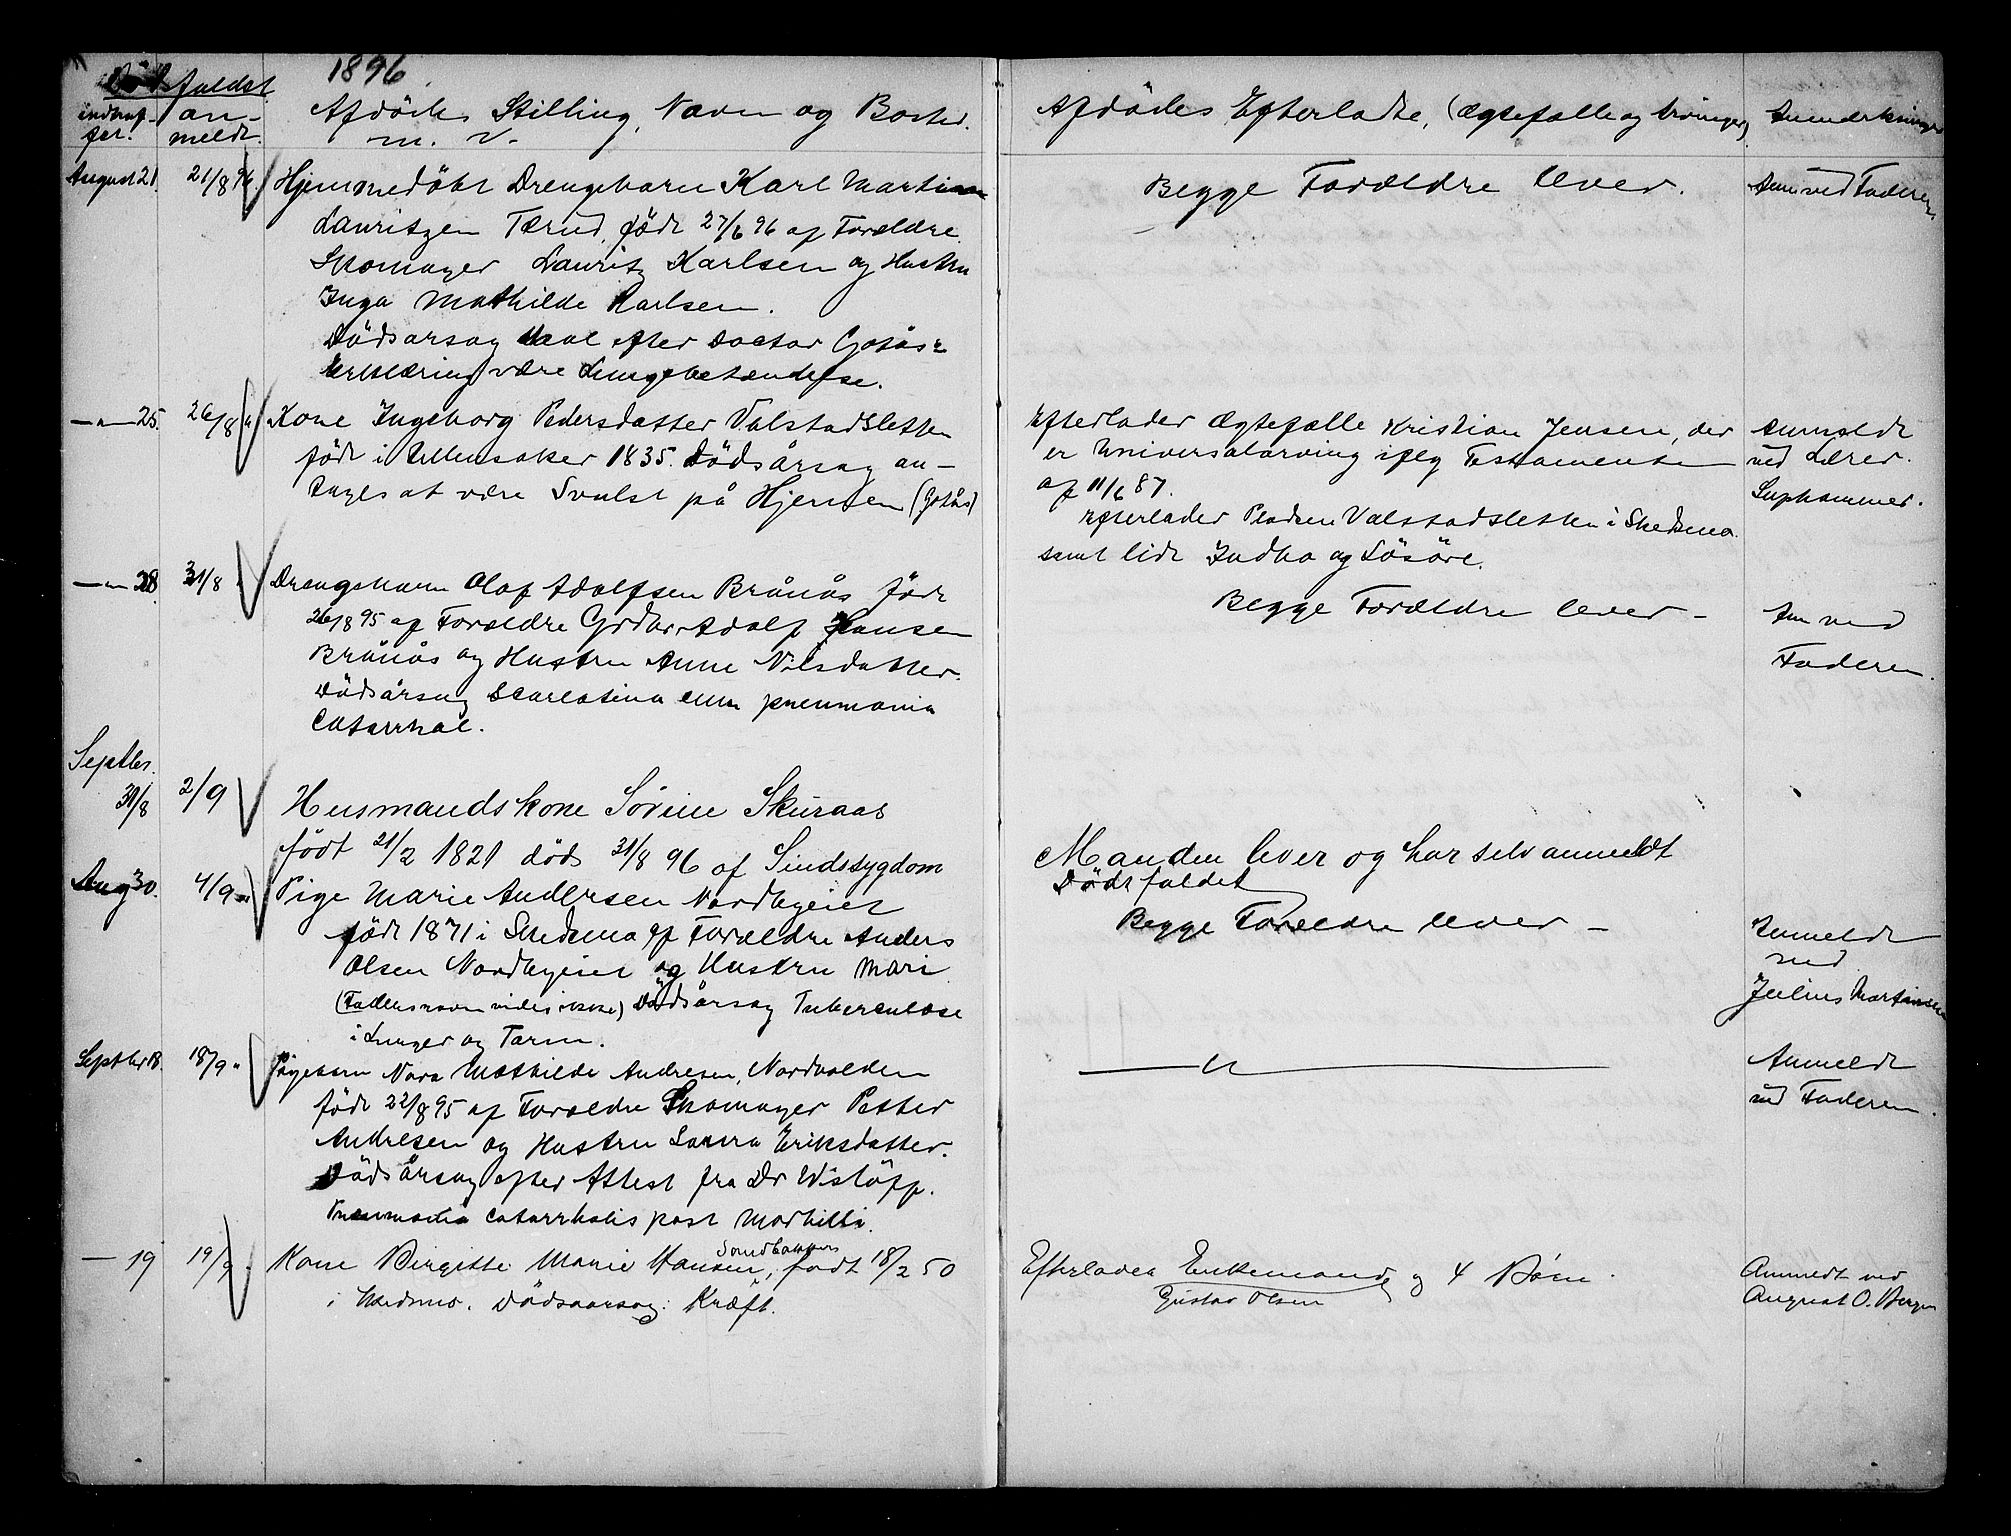 1896
Dödsfaldet
indtruf-
fet.
an-
meldt.
Afdödes Stilling, Navn og Bosted.
m. v.
Afdödes Efterladte, (Ægtefælle og Arvinger)
Anmærkninger
August 21.
21/8 96.
Hjemmedöbt Drengebarn Karl Martin
Lauritzen Tærud, födt 27/6 96 af Forældre
Skomager Lauritz Karlsen og Hustru
Inga Mathilde Karlsen.
Dödsarsag skal efter Doctor Gotås's
Erklæring være Lungebetændelse.
Begge Forældre lever.
Anm ved Faderen
— " — 25.
26/8 "
Kone Ingeborg Pedersdatter Valstadsletten
födt i Ullensaker 1835. Dödsårsag an-
tages at være Svulst på Hjernen (Gotås)
Efterlader Ægtefælle Kristian Jensen, der
er Universalarving iflg Testamente
af 11/6 87.
Efterlader Pladsen Valstadsletten i Skedsmo
samt lidt Indbo og Lösöre.
Anmeldt
ved Lærer
Suphammer.
— " — 28.
31/8 "
Drengebarn Olaf Adolfsen Brånås födt
26/8 95 af Forældre Grdbr. Adolf Hansen
Brånås og Hustru Anne Nilsdatter.
Dödsårsag Scarlatina cum pneumonia
Catarrhal.
Begge Forældre lever —
Anm ved
Faderen.
Septbr.
31/8
2/9
Husmandskone Sörine Skuraas
födt 21/2 1821 död 31/8 96 af Sindssygdom
Manden lever og har selv anmeldt
Dödsfaldet
Aug 30.
4/9 "
Pige Marie Andersen Nordbyeiet
födt 1871 i Skedsmo af Forældre Anders
Olsen Nordbyeiet og Hustru Mari
(Fadersnavn vides ikke) Dödsårsag Tuberculose
i Lunger og Tarm.
Begge Forældre lever —
Anmeldt
ved
Julius Martinsen
Septbr 18.
18/9 "
Pigebarn Nora Mathilde Andresen, Nordvolden
födt 22/8 95 af Forældre Skomager Petter
Andresen og Hustru Laura Eriksdatter.
Dödsårsag efter Attest fra Dr Wislöff.
Pneumonia catarrhalis post morbilli.
— " —
Anmeldt
ved Faderen.
— 19
19/9.
Sandbakken
Kone Birgitte Marie Hansen, födt 18/2 50
i Skedsmo. Dödsaarsag: Kræft.
Efterlader Enkemand og 4 Börn.
Gustav Olsen
Anmeldt ved
August O. Bergen